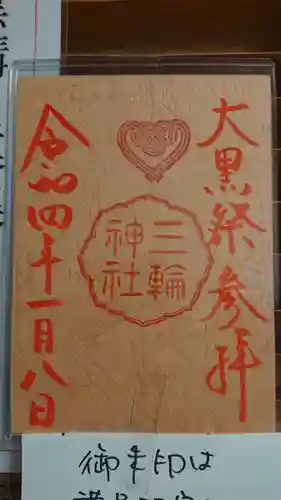 大黒祭参拝
三輪
神社
令和四年一月八日
御朱印は